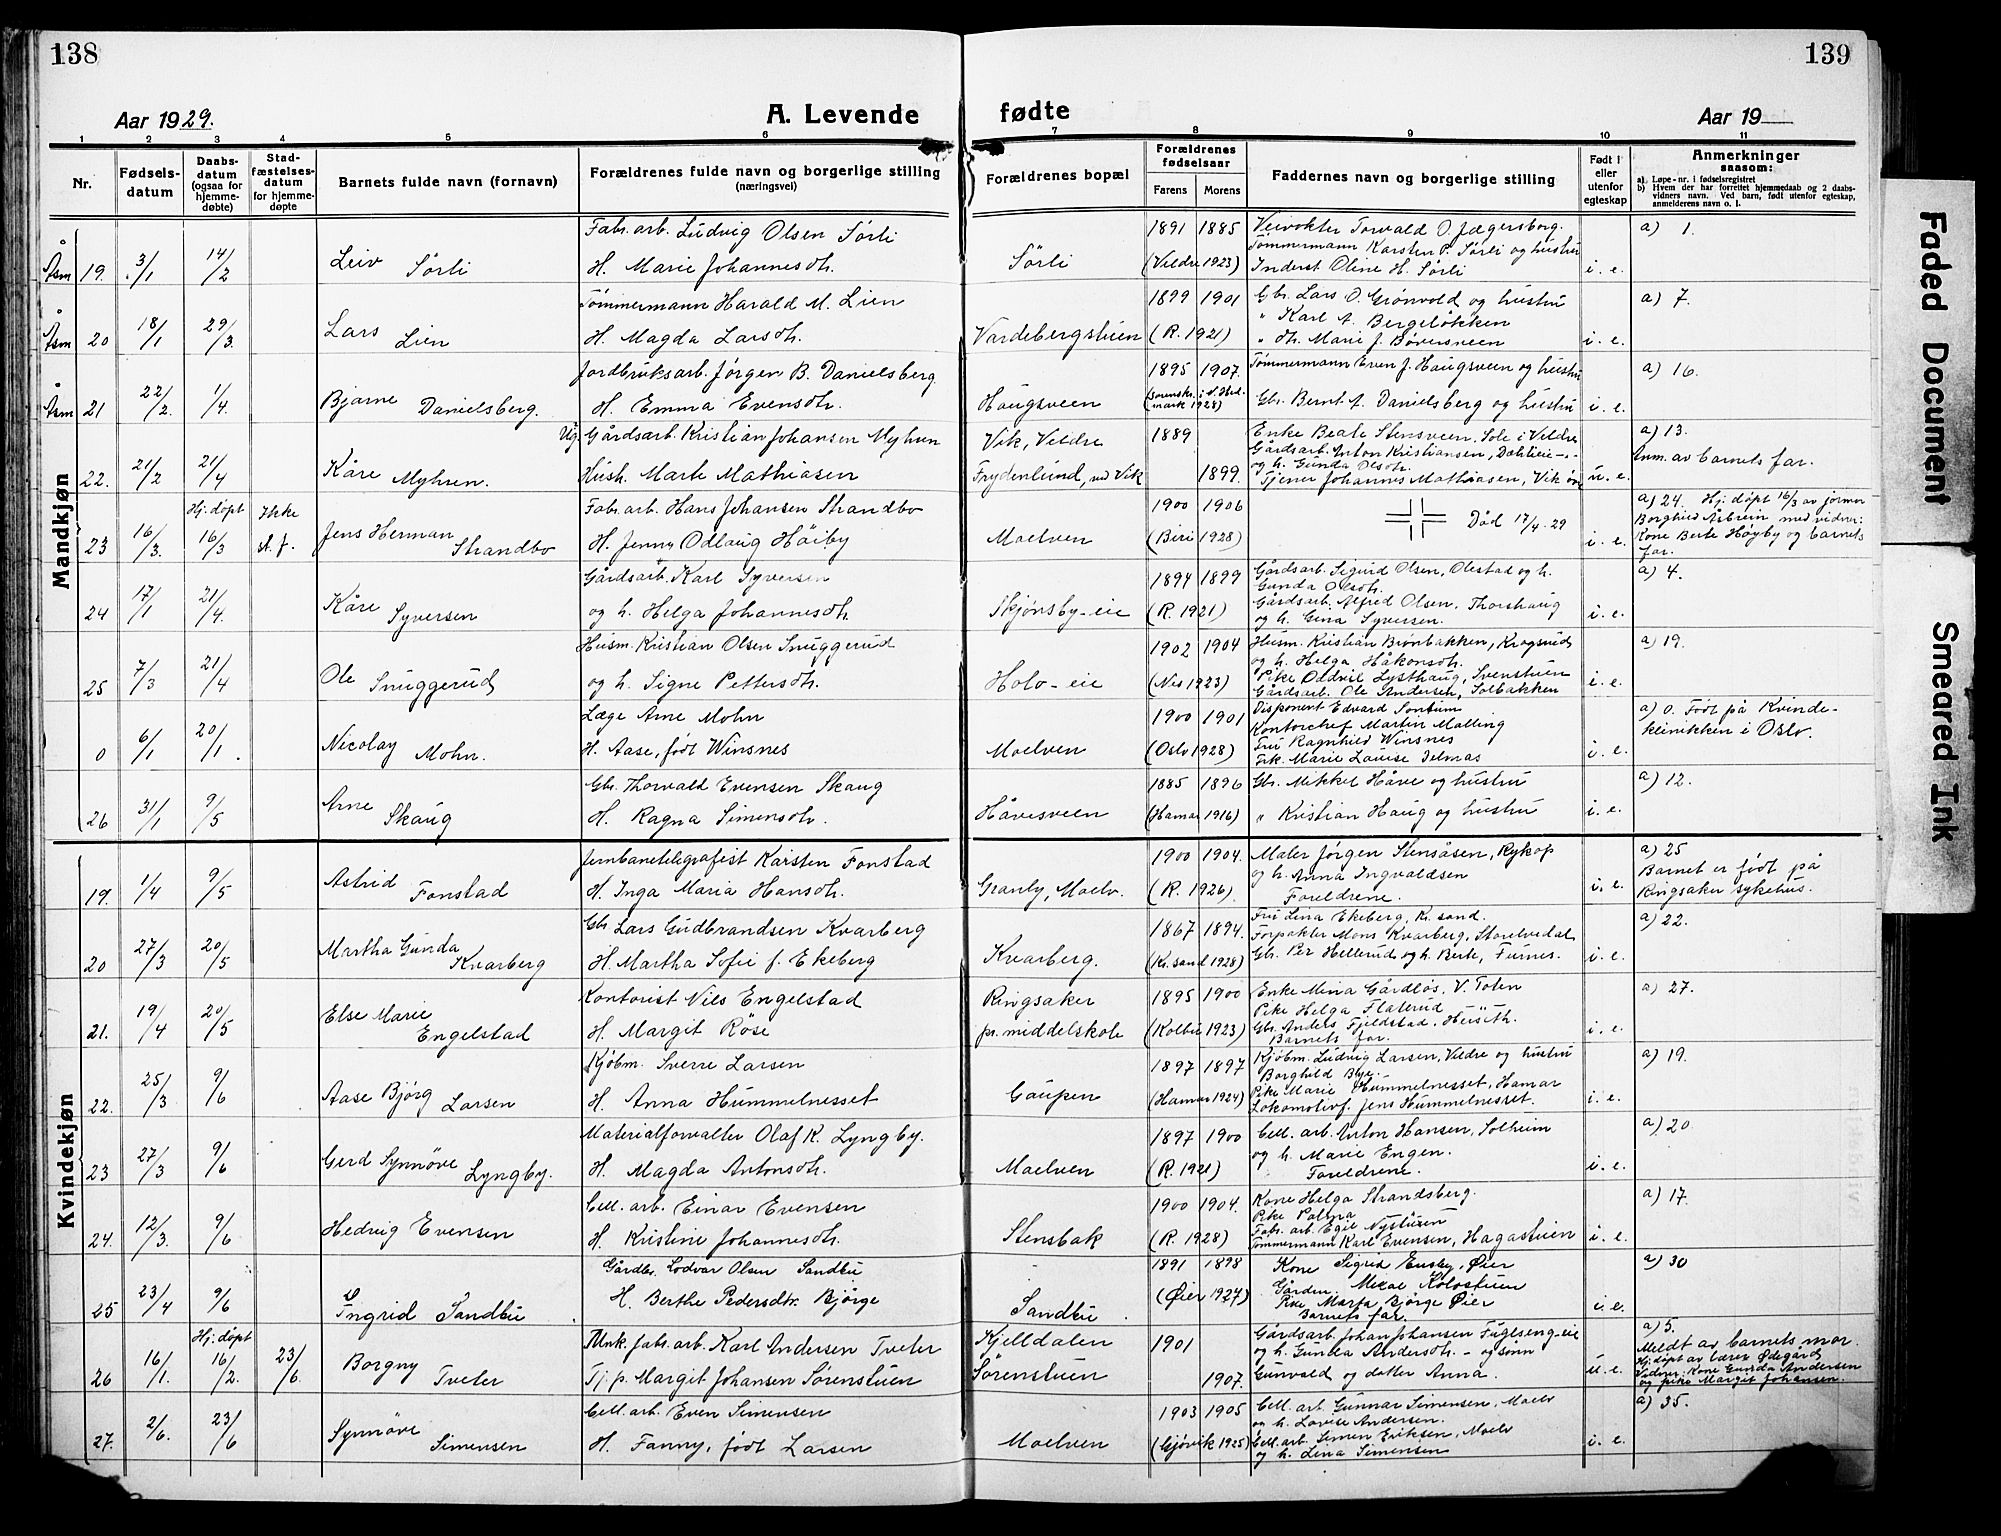 138
139
Aar 1929.
A. Levende
fødte
Aar 19
1 2 3 4 5 6 7 8 9 10 11
Nr.
Fødselsdatum
Daabsdatum (ogsaa for hjemmedøbte)
Stadfæstelsesdatum for hjemmedøpte
Barnets fulde navn (fornavn)
Forældrenes fulde navn og borgerlige stilling (næringsvei)
Forældrenes bopæl
Forældrenes fødselsaar
Farens
Morens
Faddernes navn og borgerlige stilling
Født i eller utenfor egteskap
Anmerkninger
saasom:
a) Løpe-nr. i fødselsregistret
b) Hvem der har forrettet hjemmedaab og 2 daabsvidners navn. Ved barn, født utenfor egteskap, anmelderens navn o. l.
Mandkjøn
Åsm 19. 3/1 14/2 Leiv Sørli
Fabr. arb. Ludvig Olsen Sørli
H. Marie Johannesdtr.
Sørli
1891 1885
(Veldre 1923)
Veivokter Torvald O. Jægersborg.
Tømmermann Karsten P. Sørli og hustru
Inderst Oline H. Sørli
i. e.
a) 1.
Åsm 20 18/1 29/3. Lars Lien
Tømmermann Harald M. Lien
H. Magda Larsdtr.
Vardebergstuen
1899 1901
(R. 1921)
Gbr. Lars O. Grønvold og hustru
" Karl A. Bergeløkken
" dtr. Marie J. Bøversveen
i. e.
a) 7.
Åsm 21 22/2. 1/4. Bjarne Danielsberg.
Jordbruksarb. Jørgen B. Danielsberg
H. Emma Evensdtr.
Haugsveen
1895 1907.
Tømmermann Even J. Haugsveen og hustru
Gbr. Bernt A. Danielsberg og hustru
i. e.
a) 16.
22. 21/2 21/4 Kåre Myhren.
Ug. Gårdsarb. Kristian Johansen Myhren
Hush. Marte Mathiasen
Vik, Veldre
Frydenlund, ved Vik
1889
1899.
Enke Beate Stensveen, Sole i Veldre
Gårdsarb. Anton Kristiansen, Dæhlieie-.
og h. Gunda Olsdtr.
Tjener Johannes Mathiasen, Vik øvre
u. e.
a) 13.
Anm. av barnets far.
23 16/3. Hj. døpt 16/3 Ikke st. f. Jens Herman Strandbo
Fabr. arb. Hans Johansen Strandbo
H. Jenny Odlaug Høiby
Moelven
1900 1906
(Biri 1928)
Død 17/4. 29
i. e.
a) 24. Hj. døpt 16/3 av jormor
Borghild Åsbrein med vidner:
Kone Berte Høyby og barnets
far.
24 17/1 21/4. Kåre Syversen
Gårdsarb. Karl Syversen
og h. Helga Johannesdtr.
Skjønsby-eie
1894 1899
(R. 1921)
Gårdsarb. Sigurd Olsen, Olestad og h.
Gunda Olsdtr.
Gårdsarb. Alfred Olsen, Thorshaug
og h. Gina Syversen.
i. e.
a) 4.
25 7/3 21/4 Ole Snuggerud
Husm. Kristian Olsen Snuggerud
og h. Signe Pettersdtr.
Holo-eie
1902 1904
(Nes 1923)
Husm. Kristian Brønbakken, Kragsrud
og h. Helga Håkonsdtr.
Pike Oddveil Lysthaug, Svenstuen
Gårdsarb. Ole Andersen, Solbakken
i. e.
a) 19.
0 6/1 20/1. Nicolay Mohn.
Læge Arne Mohn
H. Aase, født Winsnes
Moelven
1900 1901
(Oslo 1928)
Disponent Edvard Sontum
Kontorchef Martin Malling
Fru Ragnhild Winsnes
Frk. Marie Louise Delmas
i. e.
a) 0. Født på Kvinde-
klinikken i Oslo.
26 31/1 9/5 Arne Skaug
Gbr. Thorvald Evensen Skaug
H. Ragna Simensdtr.
Håvesveen
1885 1896
(Hamar 1916)
Gbr. Mikkel Håve og hustru
" Kristian Haug og hustru
i. e.
a) 12.
Kvindekjøn
19. 1/4 9/5 Astrid Fonstad
Jernbanetelegrafist Karsten Fonstad
H. Inga Maria Hansdtr.
Granly, Moelv.
1900 1904.
(R. 1926).
Maler Jørgen Stensåsen, Rykop
og h. Anna Ingvaldsen
Foreldrene.
i. e.
a) 25
Barnet er født på
Ringsaker sykehus.
20 27/3 20/5 Martha Gunda Kvarberg
Gbr. Lars Gudbrandsen Kvarberg
H. Martha Sofie f. Ekeberg
Kvarberg.
1867 1894.
(Kr. sand 1928)
Fru Lina Ekeberg, Kr. sand.
Forpakter Mons Kvarberg, Storelvedal
Gbr. Per Hellerud og h. Berte, Furnes.
i. e.
a) 22.
21. 19/4 20/5 Else Marie Engelstad
Kontorist Nils Engelstad
H. Margit Røse
Ringsaker
pr. middelskole
1895 1900
(Kolbu 1923)
Enke Mina Gårdløs, V. Toten
Pike Helga Flaterud
Gbr. Anders Fjeldstad,
Barnets far.
i. e.
a) 27.
22. 25/3 9/6 Aase Bjørg Larsen
Kjøbm. Sverre Larsen
H. Anna Hummelnesset
Gaupen
1897 1897
(Hamar 1924)
Kjøbm. Ludvig Larsen, Veldre og hustru
Borghild Bye.
Pike Marie Hummelnesset, Hamar
Lokomotivf. Jens Hummelnesset.
i. e.
a) 19.
23 27/3 9/6 Gerd Synnøve Lyngby.
Materialforvalter Olaf K. Lyngby.
H. Magda Antonsdtr.
Moelven
1897 1900
(R. 1921)
Cell. arb. Anton Hansen, Solheim
og h. Marie Engen.
Foreldrene.
i. e.
a) 20
24. 12/3. 9/6 Hedvig Evensen
Cell. arb. Einar Evensen
H. Kristine Johannesdtr.
Stensbak
1900 1904.
(R. 1928)
Kone Helga Strandsberg.
Pike Palma
Fabr. arb. Egil Nystuen
Tømmermann Karl Evensen, Hagastuen
i. e.
a) 17.
25 23/4 9/6 Ingrid Sandbu
Gårdbr. Lodvar Olsen Sandbu
H. Berthe Pedersdtr. Bjørge
Sandbu
1891 1898
(Øier 1927)
Kone Sigrid Ensby, Øier
Gården Mikal Kolostuen
Pike Marta Bjørge Øier
Barnets far.
i. e.
a) 30
26 16/1. Hj. døpt 16/2. 23/6. Borgny Tveter
Unk. fabr. arb. Karl Andersen Tveter
Tj. p. Margit Johansen Sørenstuen
Kjelldalen
Sørenstuen
1901
1907.
Gårdsarb. Johan Johansen Fuglseng-eie
og h. Gunda Andersdtr. - og sønn
Gunvald og datter Anna.
u. e.
a) 5.
Meldt av barnets mor.
Hj. døpt av lærer Ødegård
Vidner: Kone Gunda Andersen
og pike Margit Johansen.
27. 2/6. 23/6 Synnøve Simensen
Cell. arb. Even Simensen
H. Fanny, født Larsen
Moelven
1903 1905
(Gjøvik 1925)
Cell. arb. Gunnar Simensen, Moelv
og h. Lovise Andersen.
Cell. arb. Simen Eriksen, Moelv
og h. Lina Simensen
i. e.
a) 35.
Faded Document
Smeared Ink